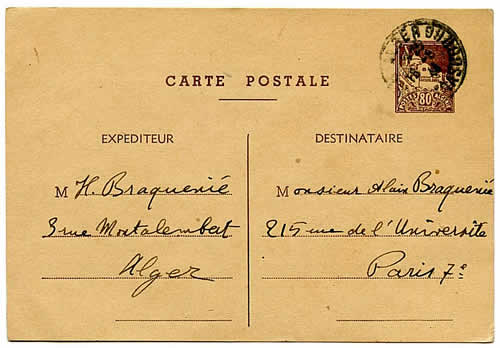 CARTE POSTALE
80
EXPEDITEUR
M H. Braquenié
3 rue Montalembert
Alger
DESTINATAIRE
Monsieur Alain Braquenié
215 rue de l'Université
Paris 7e